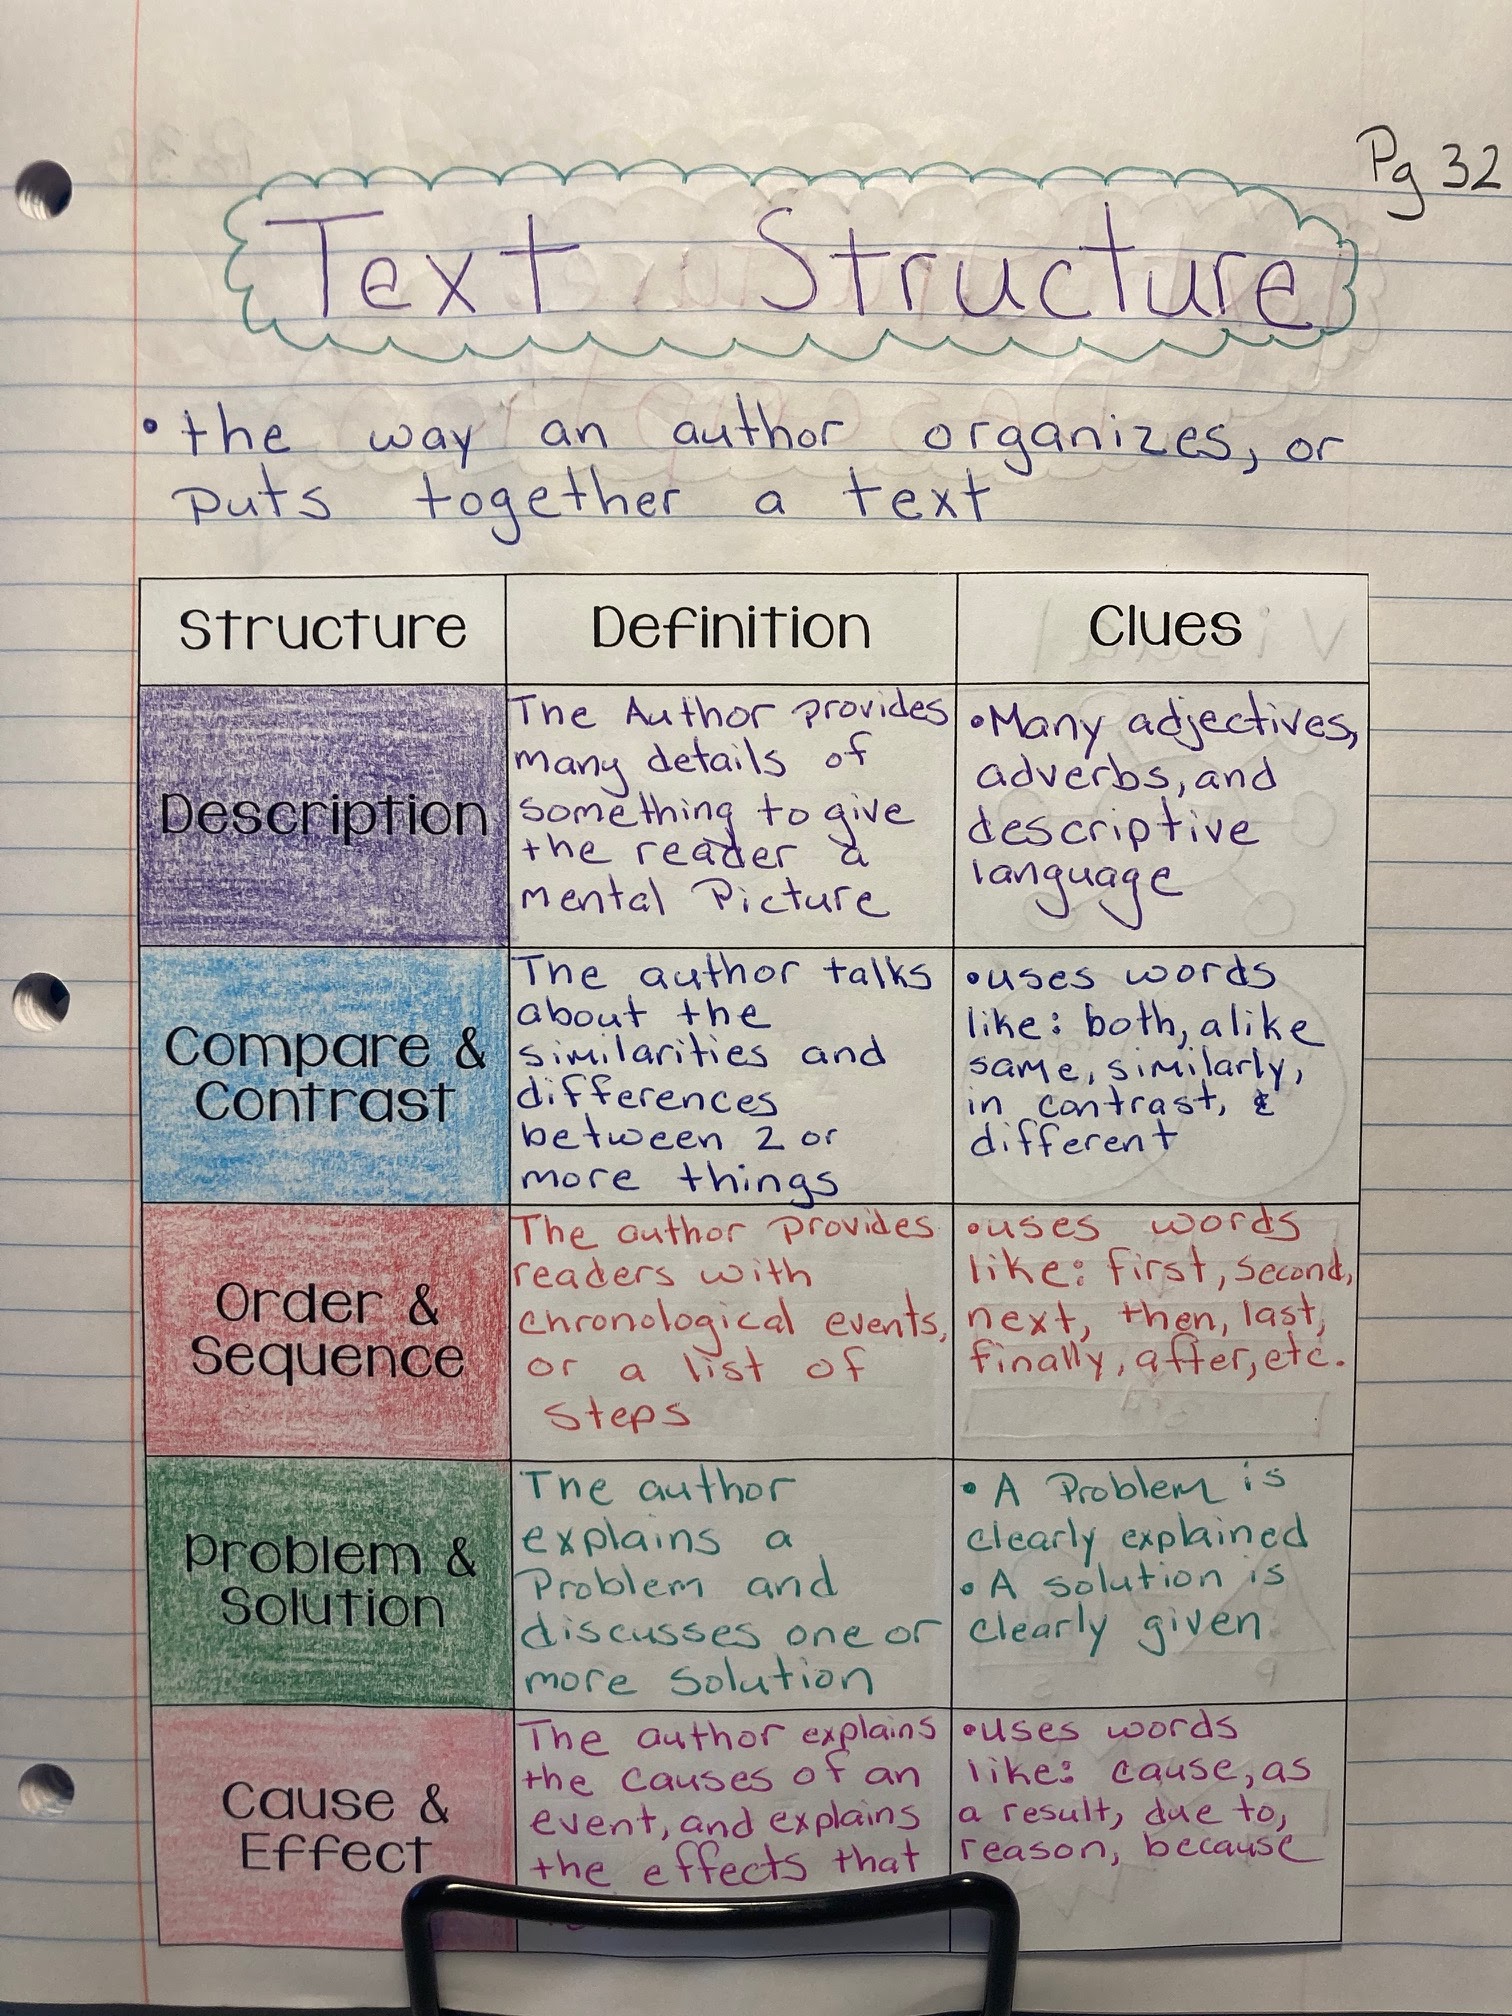 Pg 32
Text Structure
• the way an author organizes, or
puts together a text
Structure
Definition
Clues
Description
The Author provides
many details of
something to give
the reader a
mental Picture
• Many adjectives,
adverbs, and
descriptive
language
Compare &
Contrast
The author talks
about the
similarities and
differences
between 2 or
more things
• uses words
like: both, alike
same, similarly,
in contrast, &
different
Order &
Sequence
The author provides
readers with
chronological events,
or a list of
steps
• uses words
like: first, second,
next, then, last,
finally, after, etc.
Problem &
Solution
The author
explains a
Problem and
discusses one or
more solution
• A Problem is
clearly explained
• A solution is
clearly given
Cause &
Effect
The author explains
the causes of an
event, and explains
the effects that
• uses words
like: cause, as
a result, due to,
reason, because